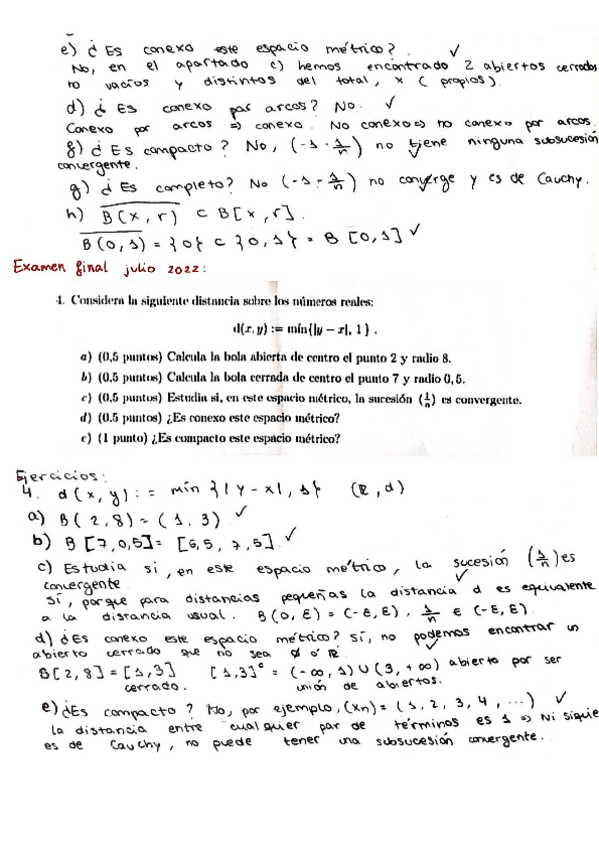 e) ¿Es conexo este espacio métrico? ✓
No, en el apartado c) hemos encontrado 2 abiertos cerrados
no vacíos y distintos del total, x ( propios).
d) ¿Es conexo por arcos? No. ✓
Conexo por arcos => conexo. No conexo => no conexo por arcos.
f) ¿Es compacto? No, (-1 - 1/n) no tiene ninguna subsucesión
convergente.
g) ¿Es completo? No (-1 - 1/n) no converge y es de Cauchy.
h) B(x, r) ⊂ B[x, r].
B(0, 1) = {0} ⊂ {0, 1} = B [0, 1] ✓
Examen final julio 2022:
4. Considera la siguiente distancia sobre los números reales:
d(x, y) := mín{|y − x|, 1} .
a) (0,5 puntos) Calcula la bola abierta de centro el punto 2 y radio 8.
b) (0,5 puntos) Calcula la bola cerrada de centro el punto 7 y radio 0,5.
c) (0,5 puntos) Estudia si, en este espacio métrico, la sucesión (1/n) es convergente.
d) (0,5 puntos) ¿Es conexo este espacio métrico?
e) (1 punto) ¿Es compacto este espacio métrico?
Ejercicios:
4. d(x, y) := mín {|y - x|, 1} (ℝ, d)
a) B(2, 8) = (1, 3) ✓
b) B [7, 0,5] = [6,5, 7,5]. ✓
c) Estudia si, en este espacio métrico, la sucesión (1/n) es
convergente.
Sí, porque para distancias pequeñas la distancia d es equivalente
a la distancia usual. B(0, ε) = (-ε, ε), 1/n ∈ (-ε, ε). ✓
d) ¿Es conexo este espacio métrico? Sí, no podemos encontrar un
abierto cerrado que no sea ∅ o ℝ.
B[2, 8] = [1, 3] [1,3]ᶜ = (-∞, 1) ∪ (3, +∞) abierto por ser
cerrado. unión de abiertos.
e) ¿Es compacto? No, por ejemplo, (xn) = (1, 2, 3, 4, ...) ✓
la distancia entre cualquier par de términos es 1 => Ni siquie
es de Cauchy, no puede tener una subsucesión convergente.